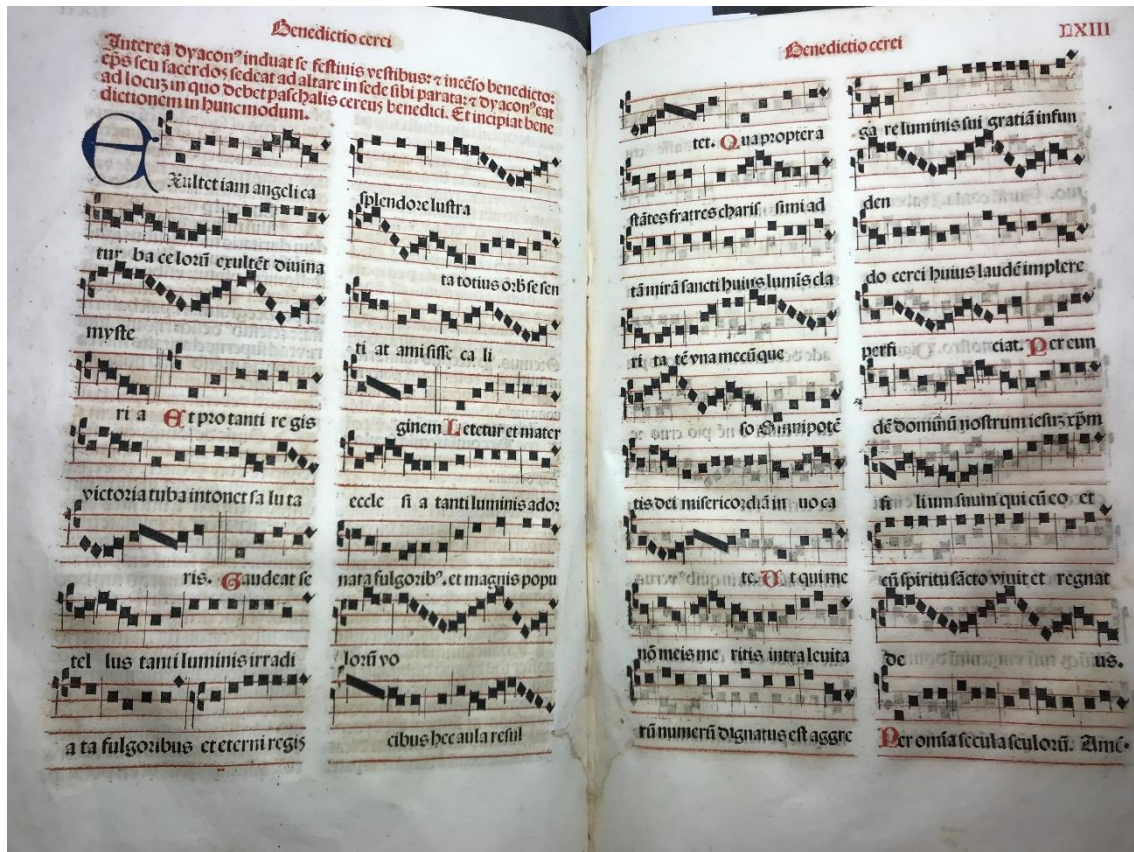 Benedictio cerei
Interea dyaconꝰ induat se festiuis vestibus: ⁊ incẽso benedicto:
ep̃s seu sacerdos sedeat ad altare in sede sibi parata: ⁊ dyaconꝰ eat
ad locuȝ in quo debet paschalis cereus benedici. Et incipiat bene
dictionem in hunc modum.
EXultet iam angeli ca
tur ba celorũ exultẽt diuina
myste
ri a Et pro tanti re gis
victoria tuba intonet sa lu ta
ris. Gaudeat se
tel lus tanti luminis irradi
a ta fulgoribus et eterni regis
splendore lustra
ta totius orb̃ se sen
ti at amisisse ca li
ginem Letetur et mater
eccle si a tanti luminis ador
nata fulgoribꝰ. et magnis popu
lorũ vo
cibus hec aula resul
Benedictio cerei
LXIII
tet. Qua propter a
stãtes fratres charis simi ad
tã mirã sancti huius lumĩs cla
ri ta tẽ vna mecũ que
so Omnipotẽ
tis dei misericordiã in uo ca
te. Ut qui me
nõ meis me ritis intra leuita
rũ numerũ dignatus est aggre
ga re luminis sui gratiã infun
den
do cerei huius laudẽ implere
perfi ciat. Per eun
dẽ dominũ nostrum iesuȝ xp̃m
fi lium suum qui cũ eo et
cũ spiritu sãcto viuit et regnat
de us.
Per omĩa secula seculorũ. Amẽ.